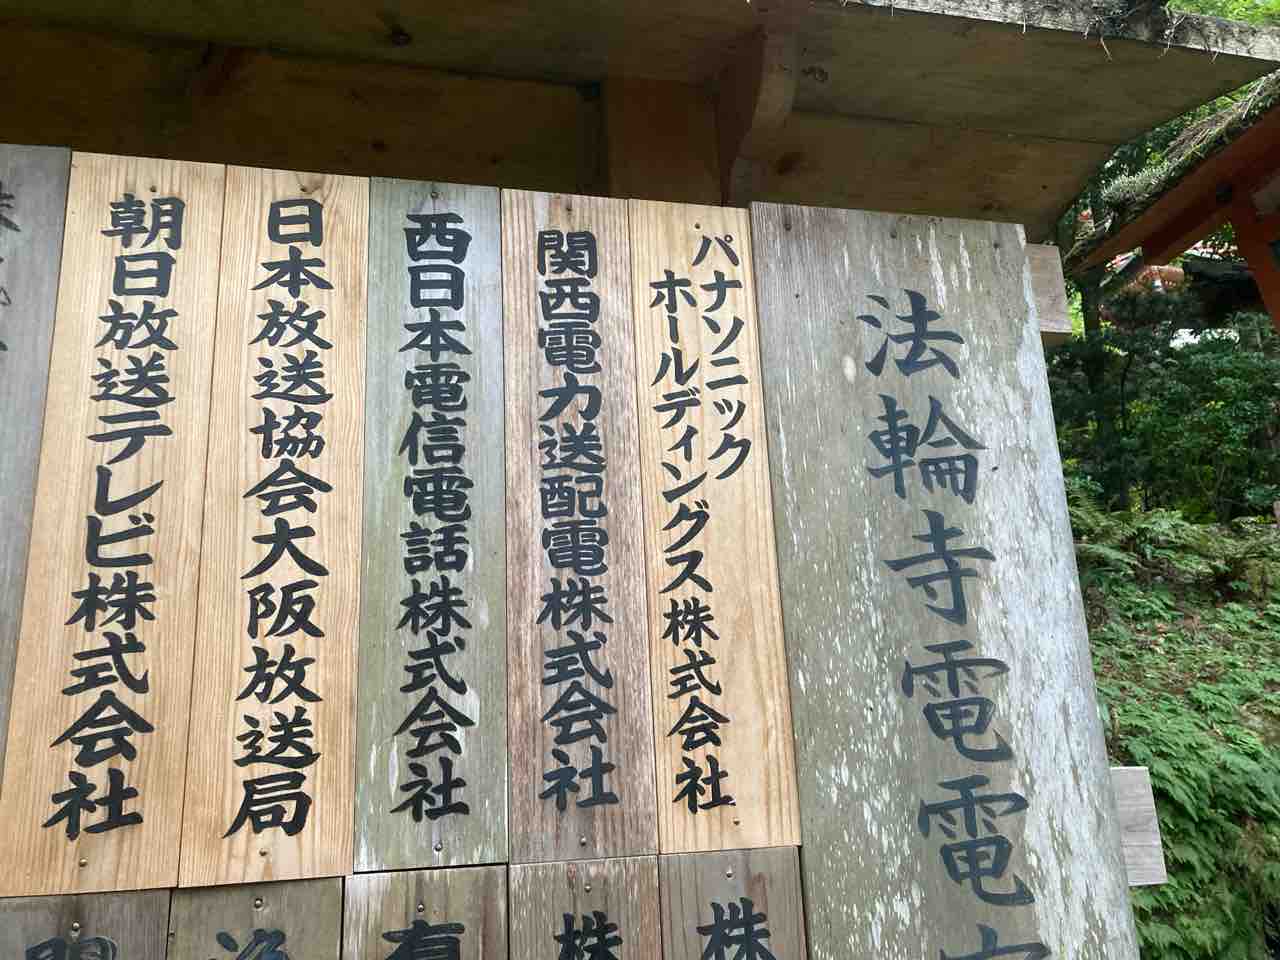 法輪寺電電
パナソニック
ホールディングス株式会社
関西電力送配電株式会社
西日本電信電話株式会社
日本放送協会大阪放送局
朝日放送テレビ株式会社
株
株